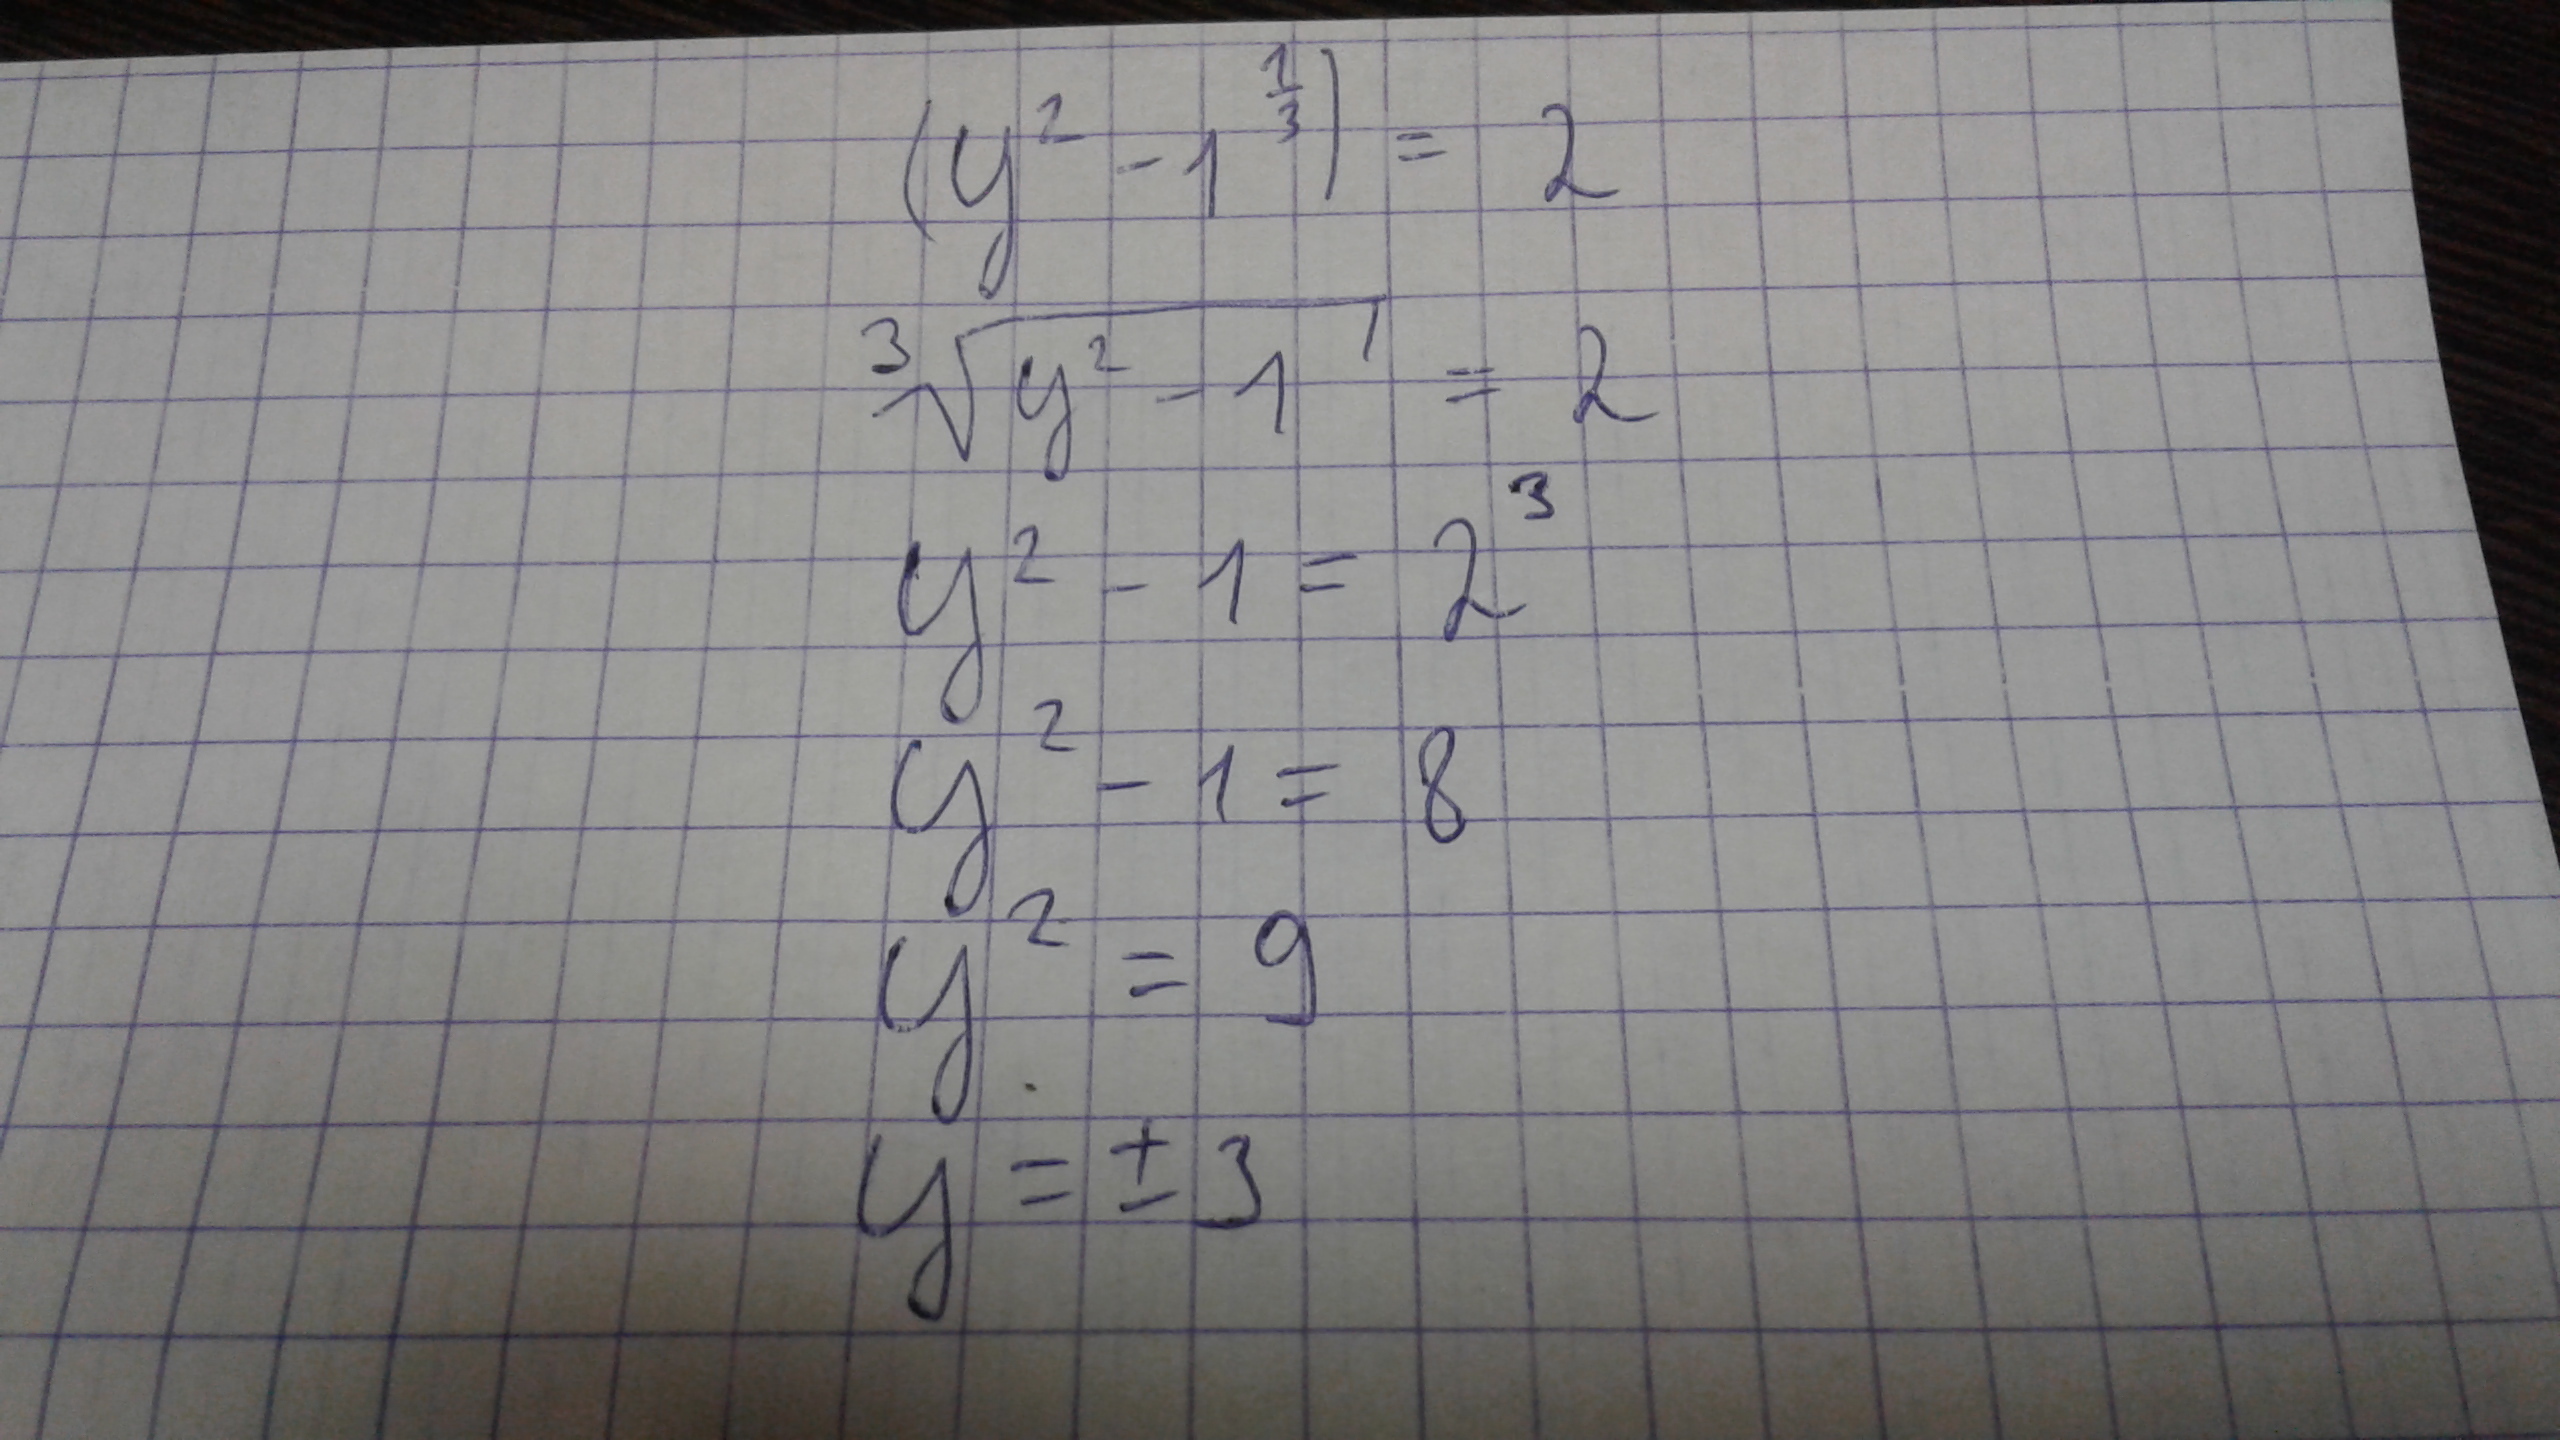 (y² - 1^(1/3)) = 2
³√(y² - 1) = 2
y² - 1 = 2³
y² - 1 = 8
y² = 9
y = ± 3